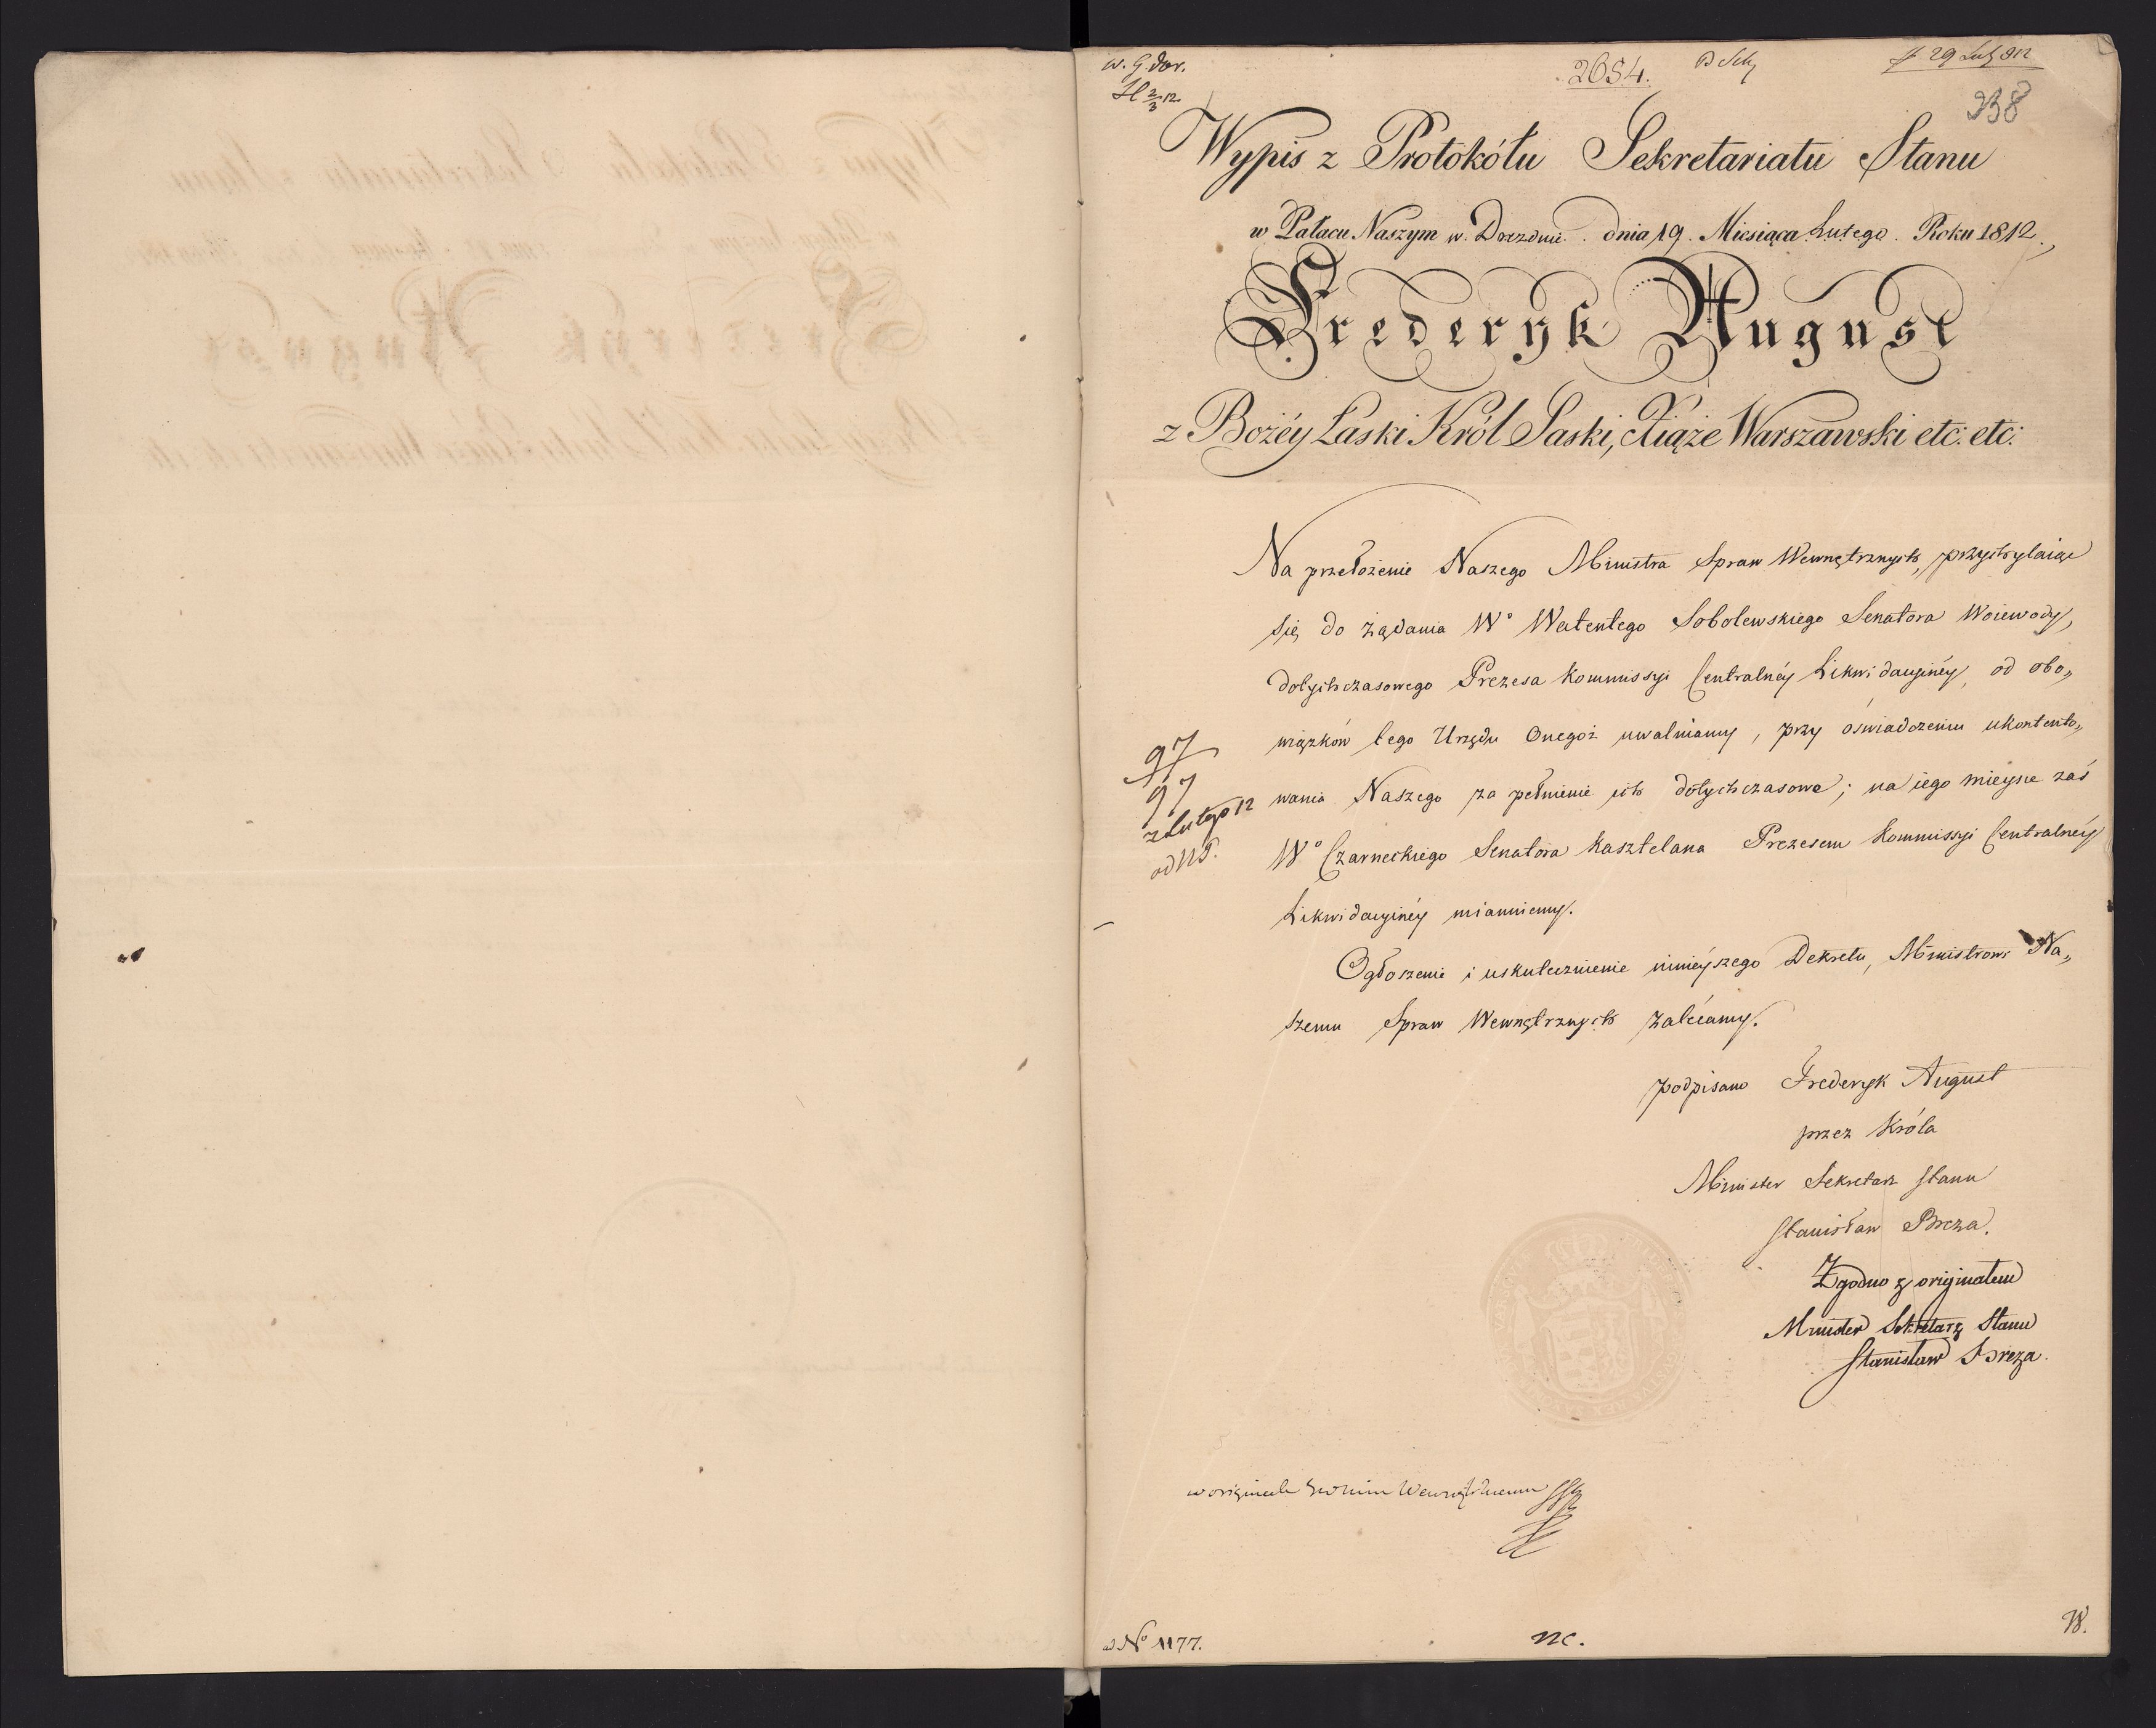 w. G. dor.
2654.
29 Lut 812
238
Wypis z Protokółu Sekretariatu Stanu
w Pałacu Naszym w. Dreznie. dnia 19. Miesiąca Lutego. Roku 1812.
Frederyk August
z Bożéy Łaski Król Saski, Xiąże Warszawski etc: etc:
Na przełożenie Naszego Ministra Spraw Wewnętrznych, przychylaiąc
się do żądania Wo Walentego Sobolewskiego Senatora Woiewody,
dotychczasowego Prezesa Kommissyi Centralnéy Likwidacyinéy, od obo„
wiązków tego Urzędu Onegoż uwalniamy, przy oświadczeniu ukontento„
wania Naszego za pełnienie ich dotychczasowe; na iego mieysce zaś
Wo Czarneckiego Senatora Kasztelana Prezesem Kommissyi Centralnéy
Likwidacyinéy mianuiemy.
97
97
z Lutego 12
od NP.
Ogłoszenie i uskutecznienie ninieyszego Dekretu, Ministrowi Na„
szemu Spraw Wewnętrznych zalécamy.
podpisano Frederyk August
przez Króla
Minister Sekretarz Stanu
Stanisław Breza.
Zgodno z originałem
Minister Sekretarz Stanu
Stanisław Breza.
w originale
ad No 1177.
nc.
W.